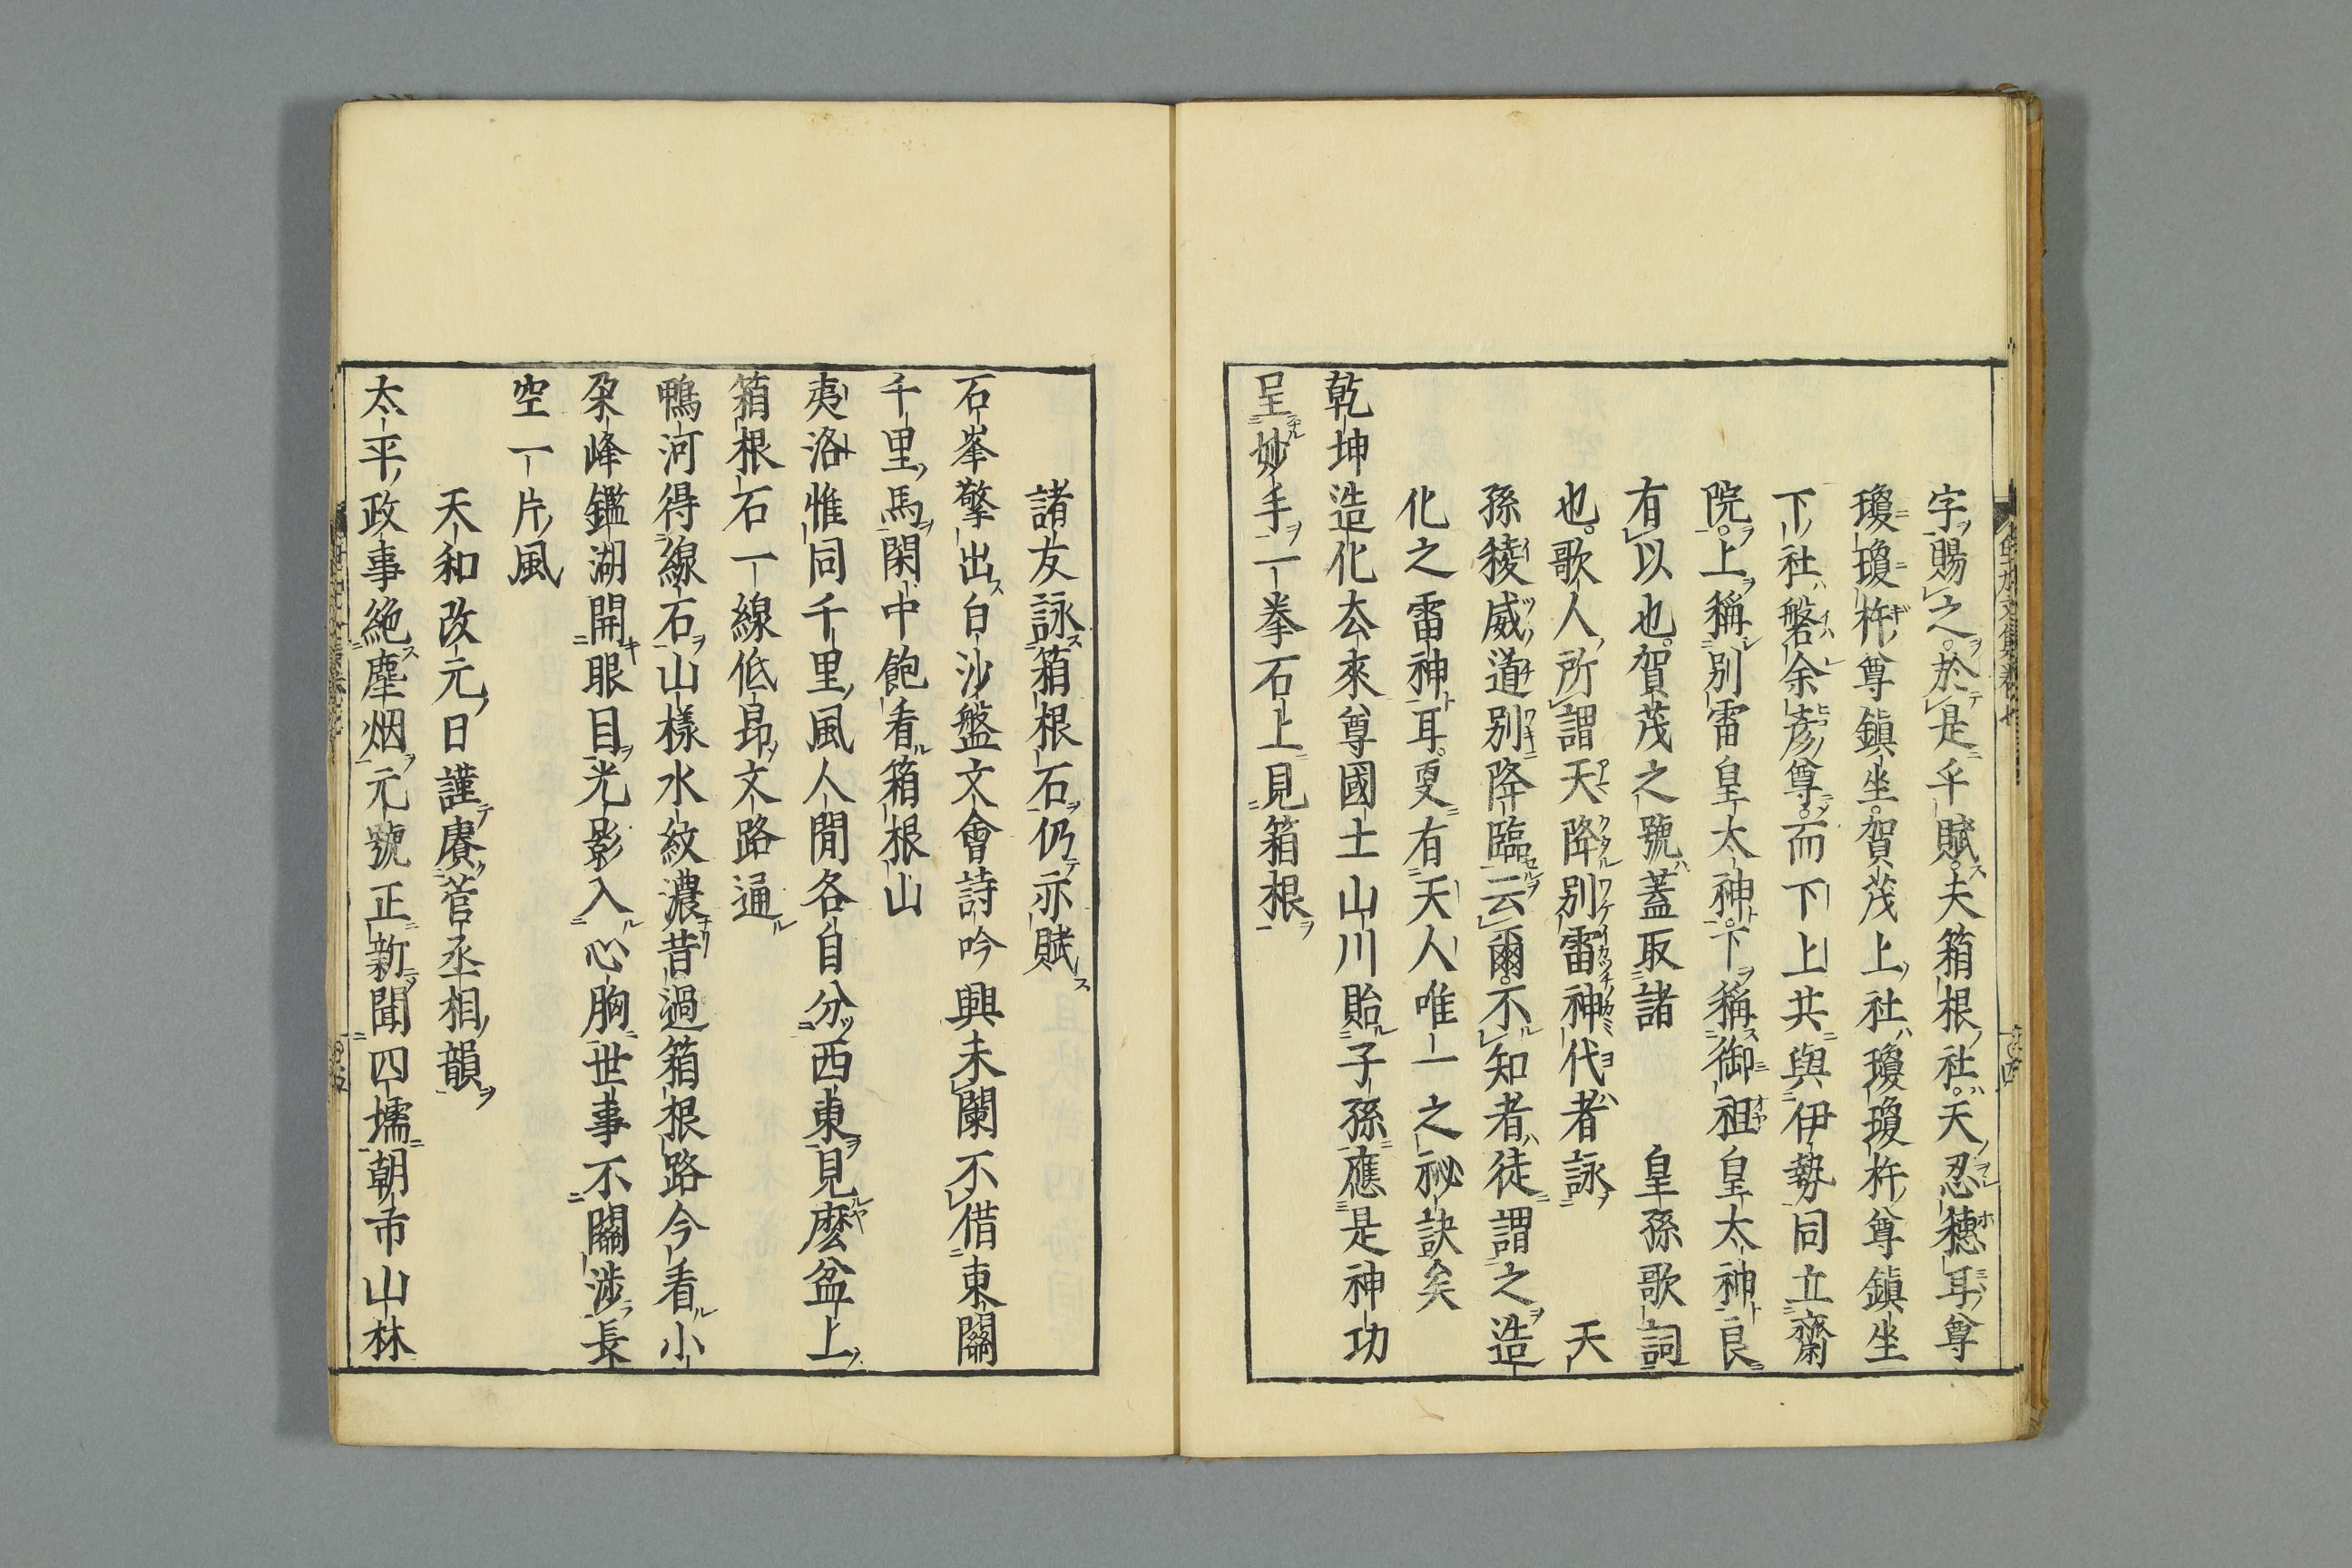 字賜之於是乎賦夫箱根社天忍穗耳尊
瓊瓊杵尊鎭坐賀茂上社瓊瓊杵尊鎭坐
下社盤余彥尊而下上共與伊勢同立齋
院上稱別雷皇太神下稱御祖皇太神良
有以也賀茂之號蓋取諸　皇孫歌詞
也歌人所謂天降別雷神代者詠　天
孫稜威道別降臨云爾不知者徒謂之造
化之雷神耳更有天人唯一之祕訣矣
乾坤造化太來尊國土山川貽子孫應是神功
呈妙手一拳石上見箱根
諸友詠箱根石仍亦賦
石峯擎出白沙盤文會詩吟興未闌不借東關
千里馬閑中飽看箱根山
夷洛惟同千里風人間各自分西東見麼盆上
箱根石一線低昂文路通
鴨河得線石山樣水紋濃昔過箱根路今看小
朶峰鑑湖開眼目光影入心胸世事不關涉長
空一片風
天和改元日謹賡菅丞相韻
太平政事絶塵烟元號正新聞四壖朝市山林